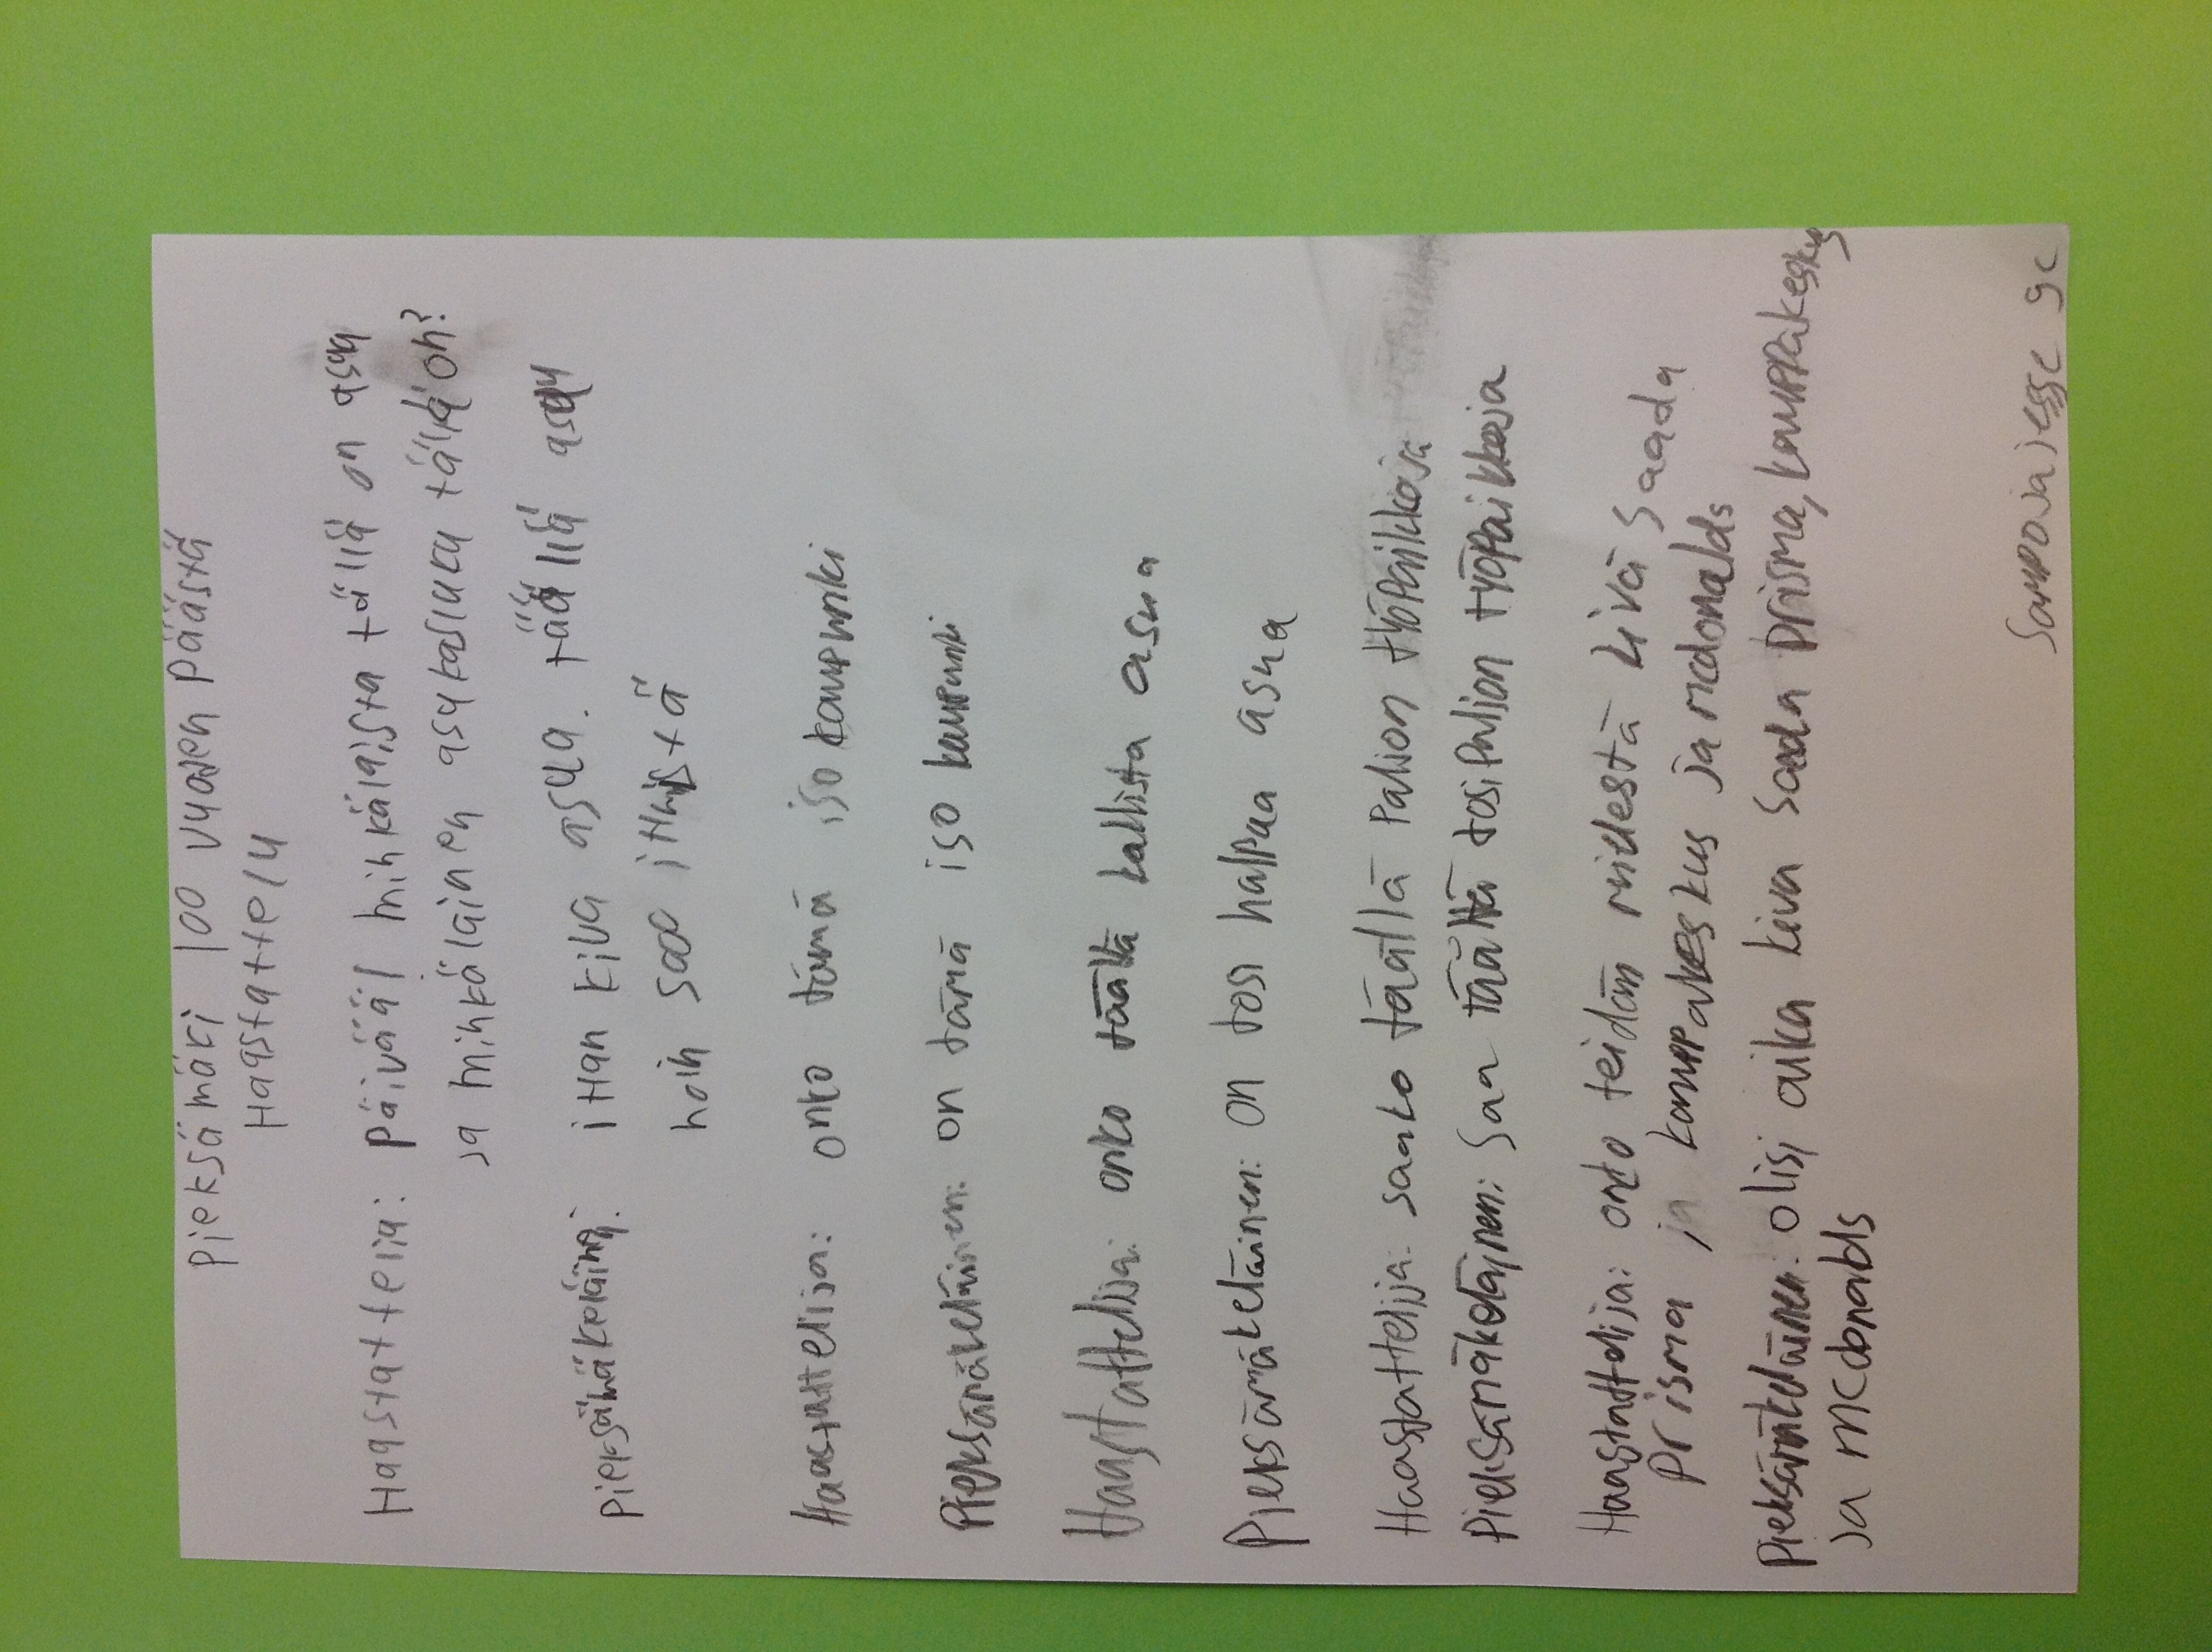 Pieksämäki 100 vuoden päästä
Haastattelu
Haastattelia: Päivää! minkälaista tällä on asua
ja minkälainen asukasluku tällä on?
Pieksämäkeläinen: ihan kiva asua. täällä asuu
noin 500 ihmistä
Haastattelija: onko tämä iso kaupunki
Pieksämäkeläinen: on tämä iso kaupunki
Haastattelija: onko täällä kallista asua
Pieksämäkeläinen: on tosi halpaa asua
Haastattelija: saako täällä paljon työpaikkoja
Pieksämäkeläinen: Saa täältä tosi paljon työpaikkoja
Haastattelija: onko teidän mielestä kivä saada
Prisma ja kauppakeskus ja mcdonalds
Pieksämäkeläinen: olisi aika kiva saada prisma, kauppakeskus
ja mcdonalds
Sampo ja jesse 9c